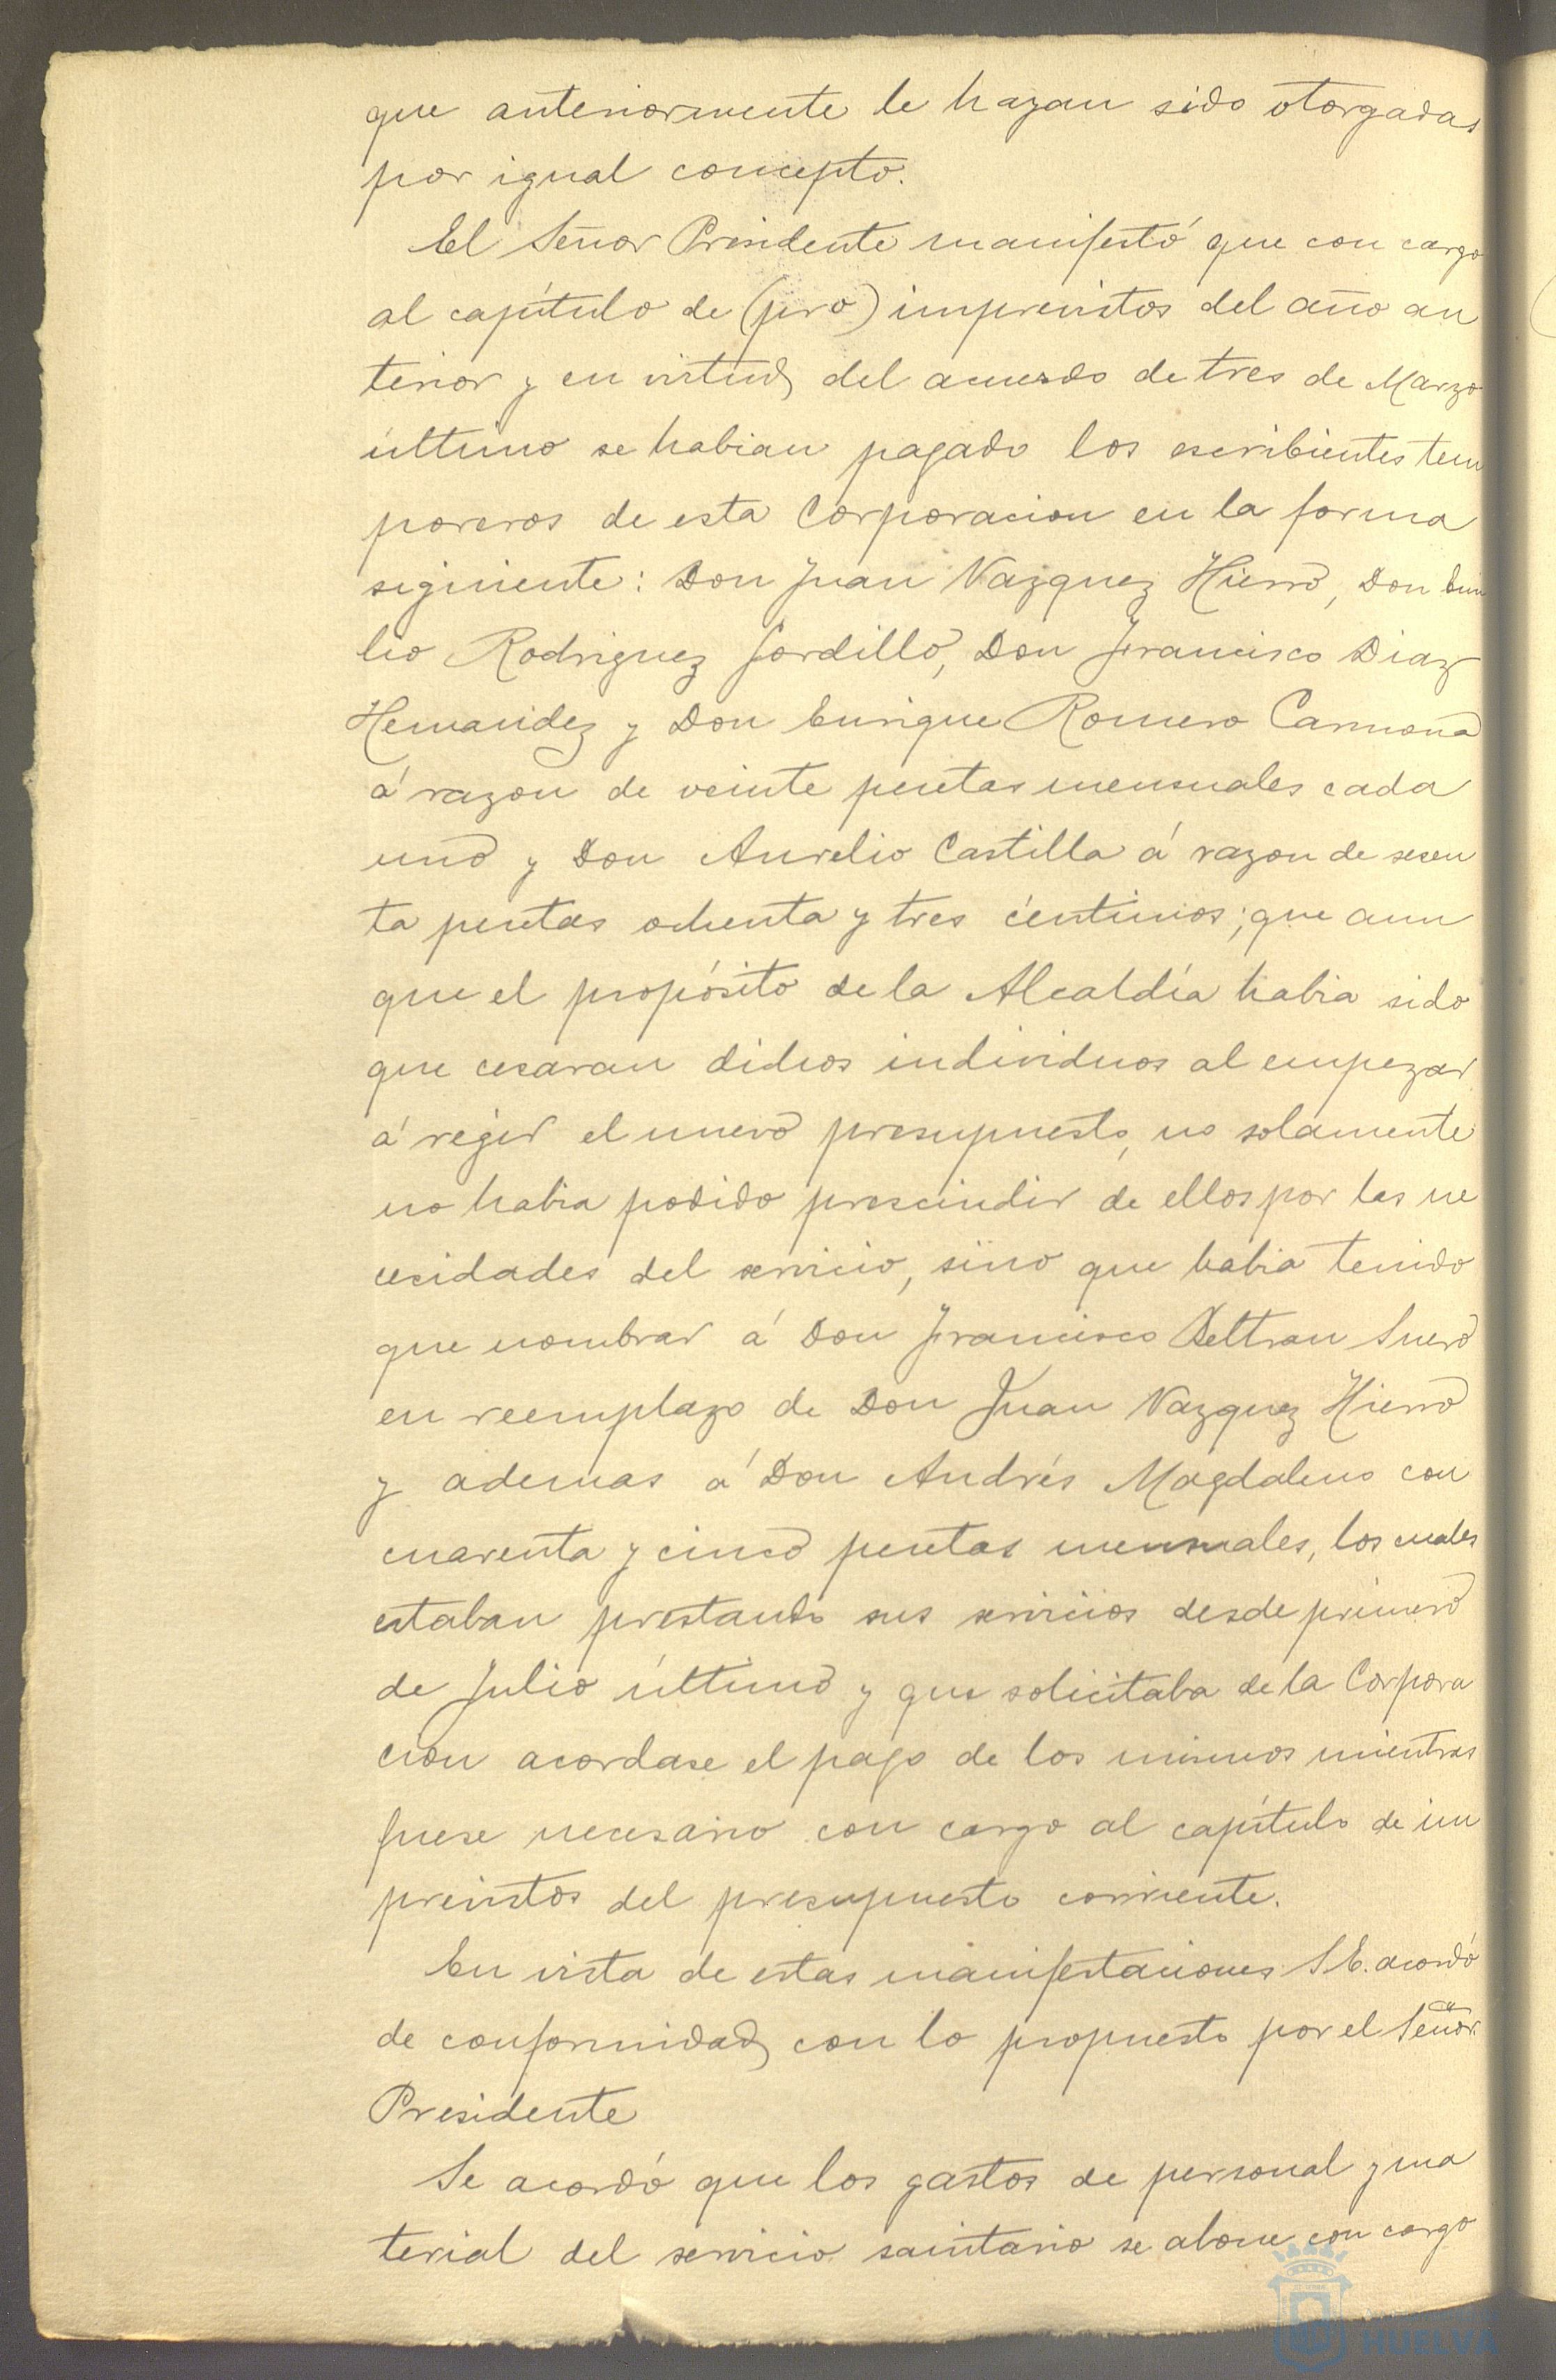 que anteriormente le hayan sido otorgadas
por igual concepto.
El Señor Presidente manifestó que con cargo
al capítulo de (pro) imprevistos del año an
terior y en virtud del acuerdo de tres de Marzo
último se habian pagado los escribientes tem
poreros de esta Corporacion en la forma
siguiente: Don Juan Vazquez Hierro, Don Emi
lio Rodriguez Gordillo, Don Francisco Diaz
Hernandez y Don Enrique Romero Carmona
á razon de veinte pesetas mensuales cada
uno y Don Aurelio Castilla á razon de sesen
ta pesetas ochenta y tres céntimos; que aun
que el propósito de la Alcaldía habia sido
que cesaran dichos individuos al empezar
á regir el nuevo presupuesto, no solamente
no habia podido prescindir de ellos por las ne
cesidades del servicio, sino que habia tenido
que nombrar á Don Francisco Beltran Suero
en reemplazo de Don Juan Vazquez Hierro
y ademas á Don Andrés Magdaleno con
cuarenta y cinco pesetas mensuales, los cuales
estaban prestando sus servicios desde primero
de Julio último y que solicitaba de la Corpora
cion acordase el pago de los mismos mientras
fuese necesario con cargo al capítulo de im
previstos del presupuesto corriente.
En vista de estas manifestaciones S.E. acordó
de conformidad con lo propuesto por el Señor
Presidente
Se acordó que los gastos de personal y ma
terial del servicio sanitario se abone con cargo
HUELVA